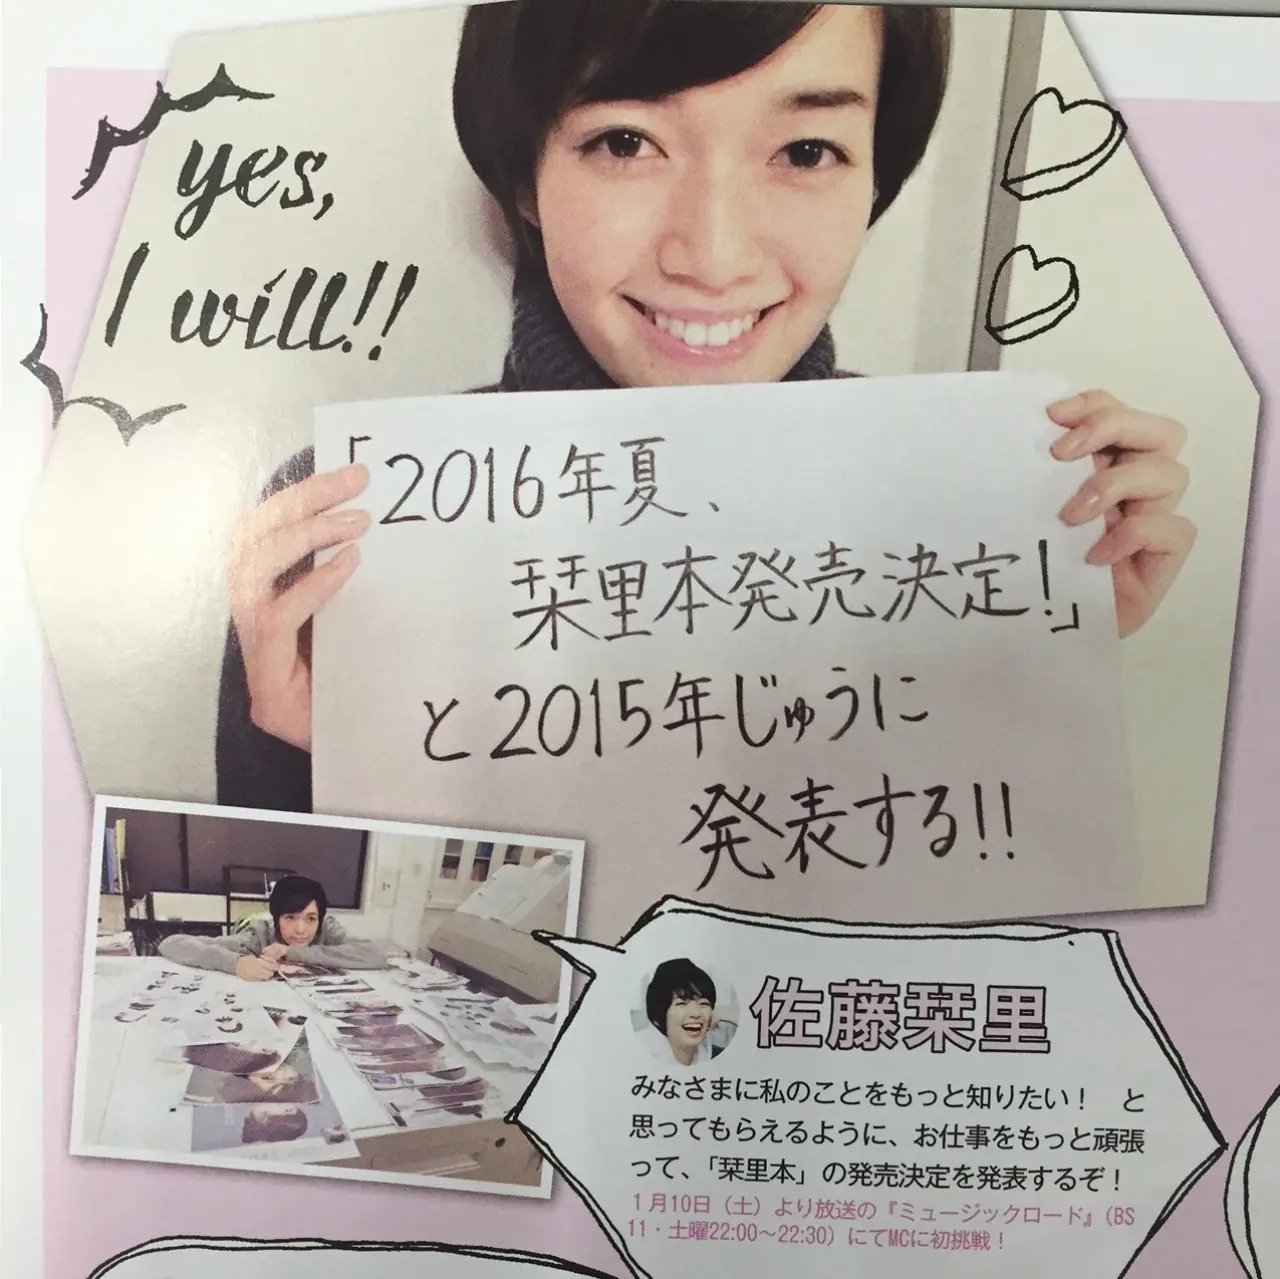 yes,
I will!!
「2016年夏、
栞里本発売決定!」
と2015年じゅうに
発表する!!
佐藤栞里
みなさまに私のことをもっと知りたい！　と
思ってもらえるように、お仕事をもっと頑張
って、「栞里本」の発売決定を発表するぞ！
1月10日（土）より放送の『ミュージックロード』（BS
11・土曜22:00〜22:30）にてMCに初挑戦！